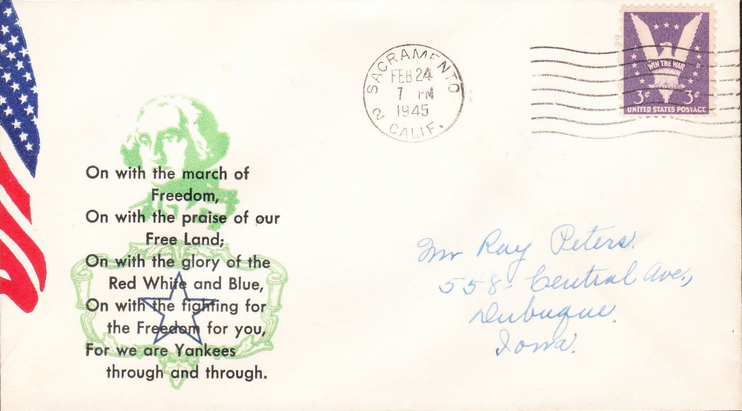 On with the march of
Freedom,
On with the praise of our
Free Land;
On with the glory of the
Red White and Blue,
On with the fighting for
the Freedom for you,
For we are Yankees
through and through.
SACRAMENTO
FEB 24
7 PM
1945
2 CALIF.
WIN THE WAR
3¢ 3¢
UNITED STATES POSTAGE
Mr Ray Peters.
558 Central Ave,
Dubuque.
Iowa.